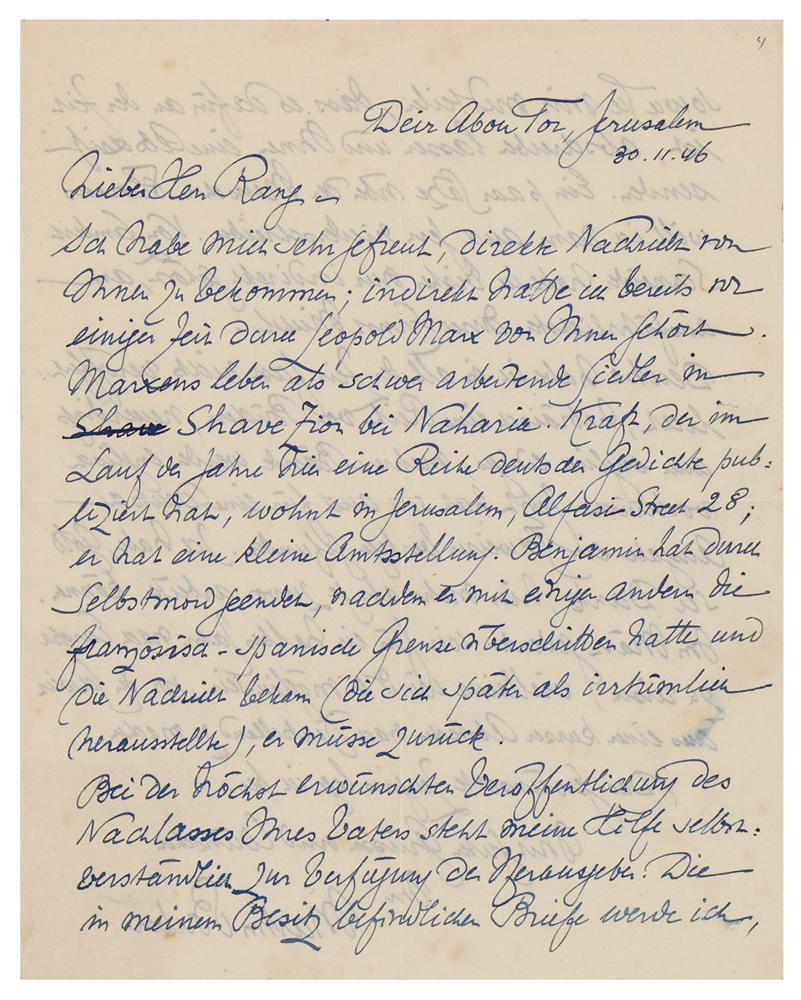 4
Deir Abou Tor, Jerusalem
30.11.46
Lieber Herr Rang –
Ich habe mich sehr gefreut, direkte Nachricht von
Ihnen zu bekommen; indirekt hatte ich bereits vor
einiger Zeit durch Leopold Marx von Ihnen gehört.
Marxens leben als schwer arbeitende Siedler in
Shave Shave Zion bei Naharia. Kraft, der im
Lauf der Jahre hier eine Reihe deutscher Gedichte pub-
liziert hat, wohnt in Jerusalem, Alfasi Street 28;
er hat eine kleine Amtsstellung. Benjamin hat durch
Selbstmord geendet, nachdem er mit einigen andern die
französisch-spanische Grenze überschritten hatte und
die Nachricht bekam (die sich später als irrtümlich
herausstellte), er müsse zurück.
Bei der höchst erwünschten Veröffentlichung des
Nachlasses Ihres Vaters steht meine Hilfe selbst-
verständlich zur Verfügung der Herausgeber. Die
in meinem Besitz befindlichen Briefe werde ich,